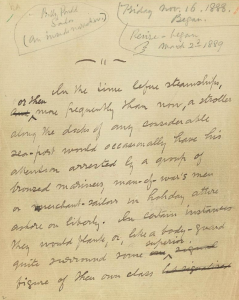 Billy Budd
Sailor
(An inside narrative)
Friday Nov. 16, 1888.
Began.
Revise - began
March 2. 1889
In the time before steamships,
or then more frequently than now, a stroller
along the docks of any considerable
sea-port would occasionally have his
attention arrested by a group of
bronzed mariners, man-of-war's men
or merchant-sailors in holiday attire
ashore on liberty. In certain instances
they would flank, or, like a body-guard
quite surround some superior
figure of their own class